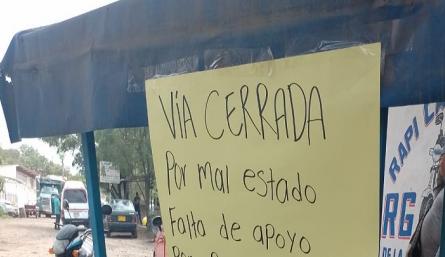 VÍA CERRADA
Por mal estado
Falta de apoyo
RAPI
RG
DE LA